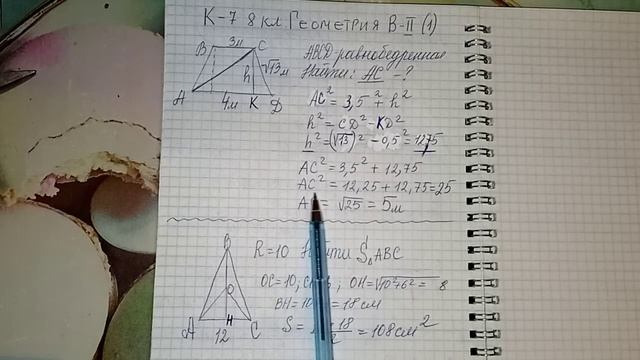 К-7 8 кл. Геометрия В-II (1)
B 3м C
√13м
h
A 4м K D
ABCD-равнобедренная
Найти: AC -?
AC² = 3,5² + h²
h² = CD² - KD²
h² = (√13)² - 0,5² = 12,75
AC² = 3,5² + 12,75
AC² = 12,25 + 12,75 = 25
= √25 = 5м
B
O
A H C
12
R=10 Найти S△ABC
OC=10, OH=√10²-6² = 8
BH=10 = 18 см
S = 18/2 = 108 см²